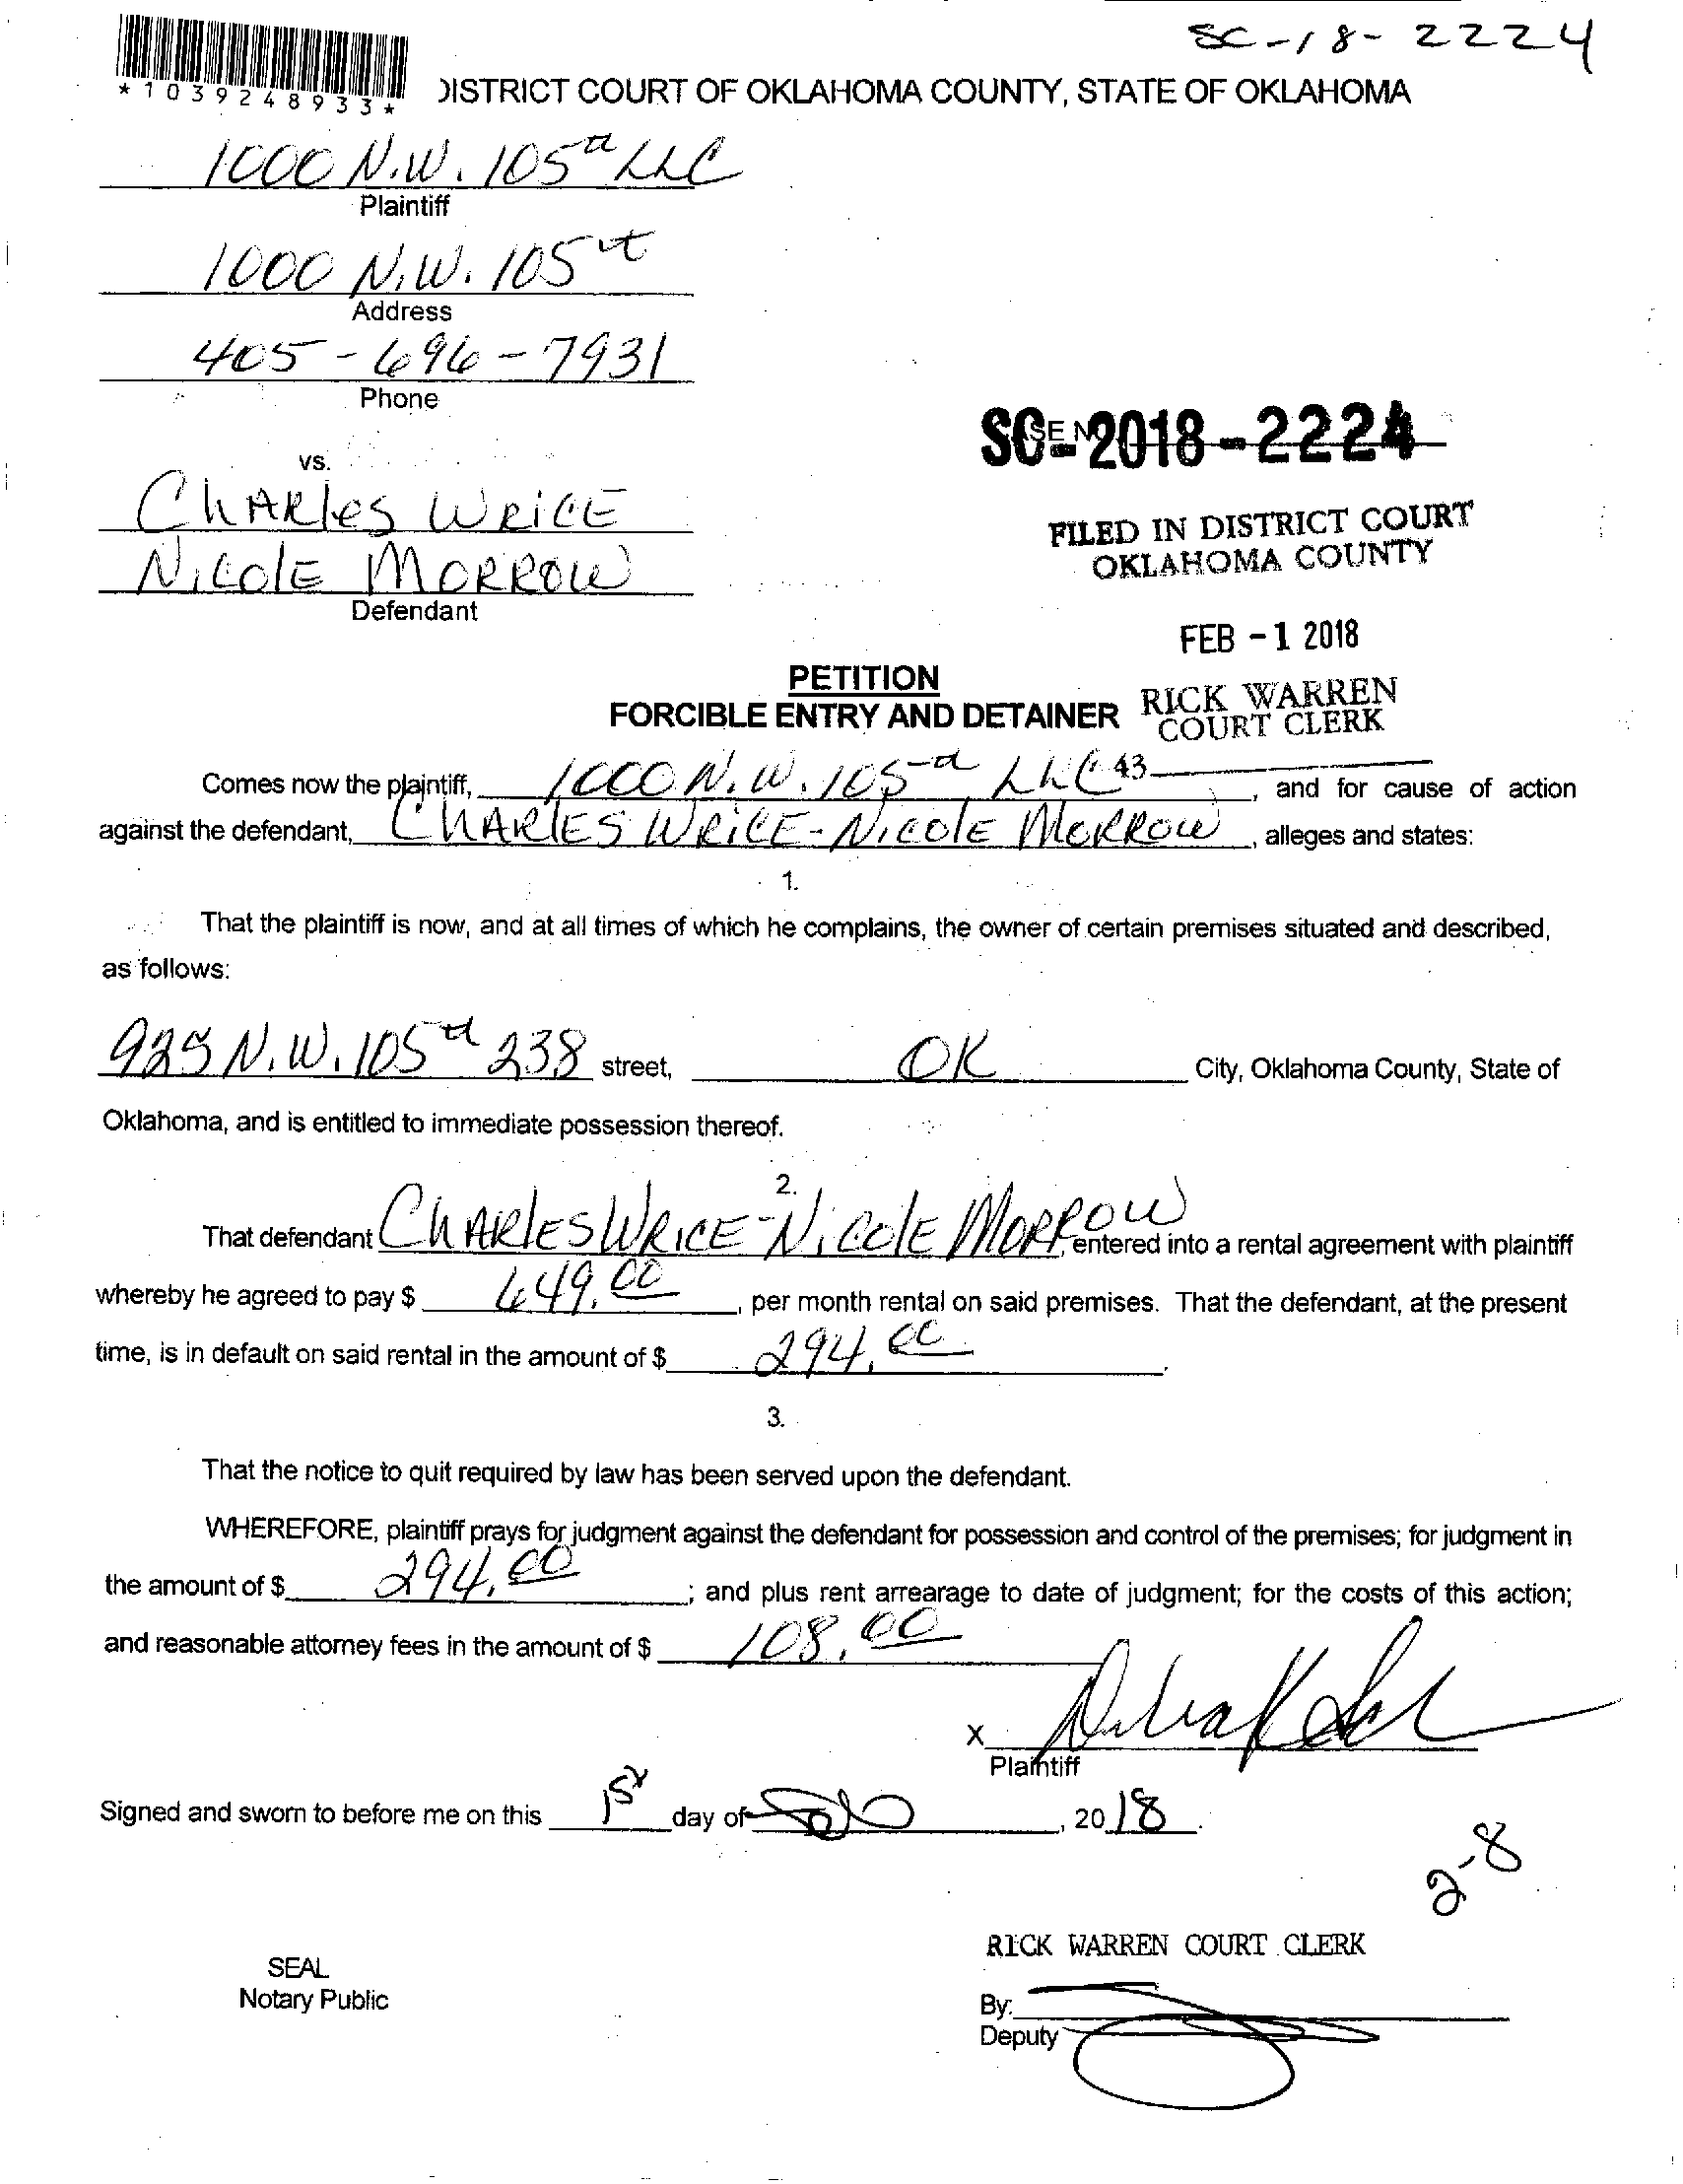 SC-18-2224
*1039248933*
DISTRICT COURT OF OKLAHOMA COUNTY, STATE OF OKLAHOMA
1000 N.W. 105th LLC
Plaintiff
1000 N.W. 105th
Address
405-696-7931
Phone
SC-2018-2224
vs.
Charles Wrice
Nicole Morrow
Defendant
FILED IN DISTRICT COURT
OKLAHOMA COUNTY
FEB -1 2018
PETITION
FORCIBLE ENTRY AND DETAINER
RICK WARREN
COURT CLERK
43
Comes now the plaintiff, 1000 N.W. 105th LLC, and for cause of action
against the defendant, Charles Wrice-Nicole Morrow, alleges and states:
1.
That the plaintiff is now, and at all times of which he complains, the owner of certain premises situated and described,
as follows:
925 N.W. 105th 238 street, OK City, Oklahoma County, State of
Oklahoma, and is entitled to immediate possession thereof.
2.
That defendant Charles Wrice-Nicole Morrow, entered into a rental agreement with plaintiff
whereby he agreed to pay $ 649.00, per month rental on said premises. That the defendant, at the present
time, is in default on said rental in the amount of $ 294.00.
3.
That the notice to quit required by law has been served upon the defendant.
WHEREFORE, plaintiff prays for judgment against the defendant for possession and control of the premises; for judgment in
the amount of $ 294.00; and plus rent arrearage to date of judgment; for the costs of this action;
and reasonable attorney fees in the amount of $ 108.00
X
Plaintiff
Signed and sworn to before me on this 1st day of , 2018.
2-8
RICK WARREN COURT CLERK
SEAL
Notary Public
By:
Deputy